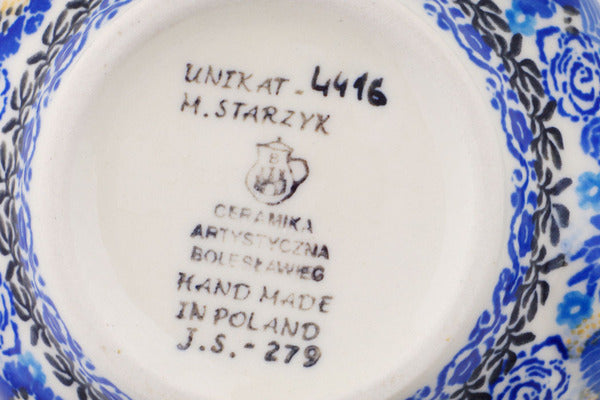 UNIKAT - 4416
M. STARZYK
B
CERAMIKA
ARTYSTYCZNA
BOLESŁAWIEC
HAND MADE
IN POLAND
J.S. - 279